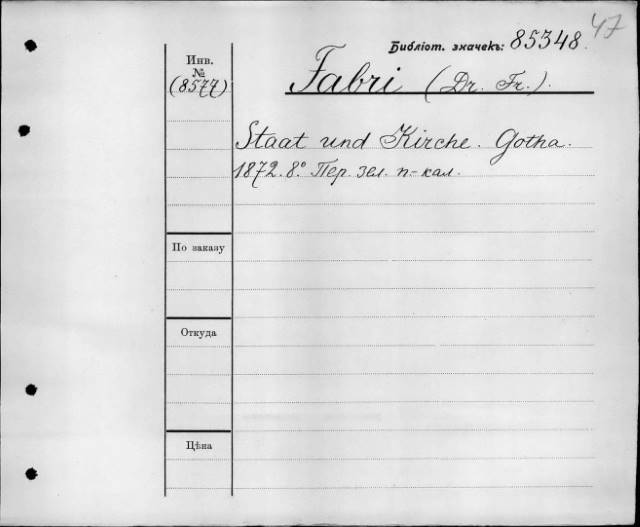 47
Библіот. значекъ: 85348.
Инв.
№
(8577)
Fabri (Dr. Fr.).
Staat und Kirche. Gotha.
1872. 8.° Пер. зел. п.-кал.
По заказу
Откуда
Цѣна